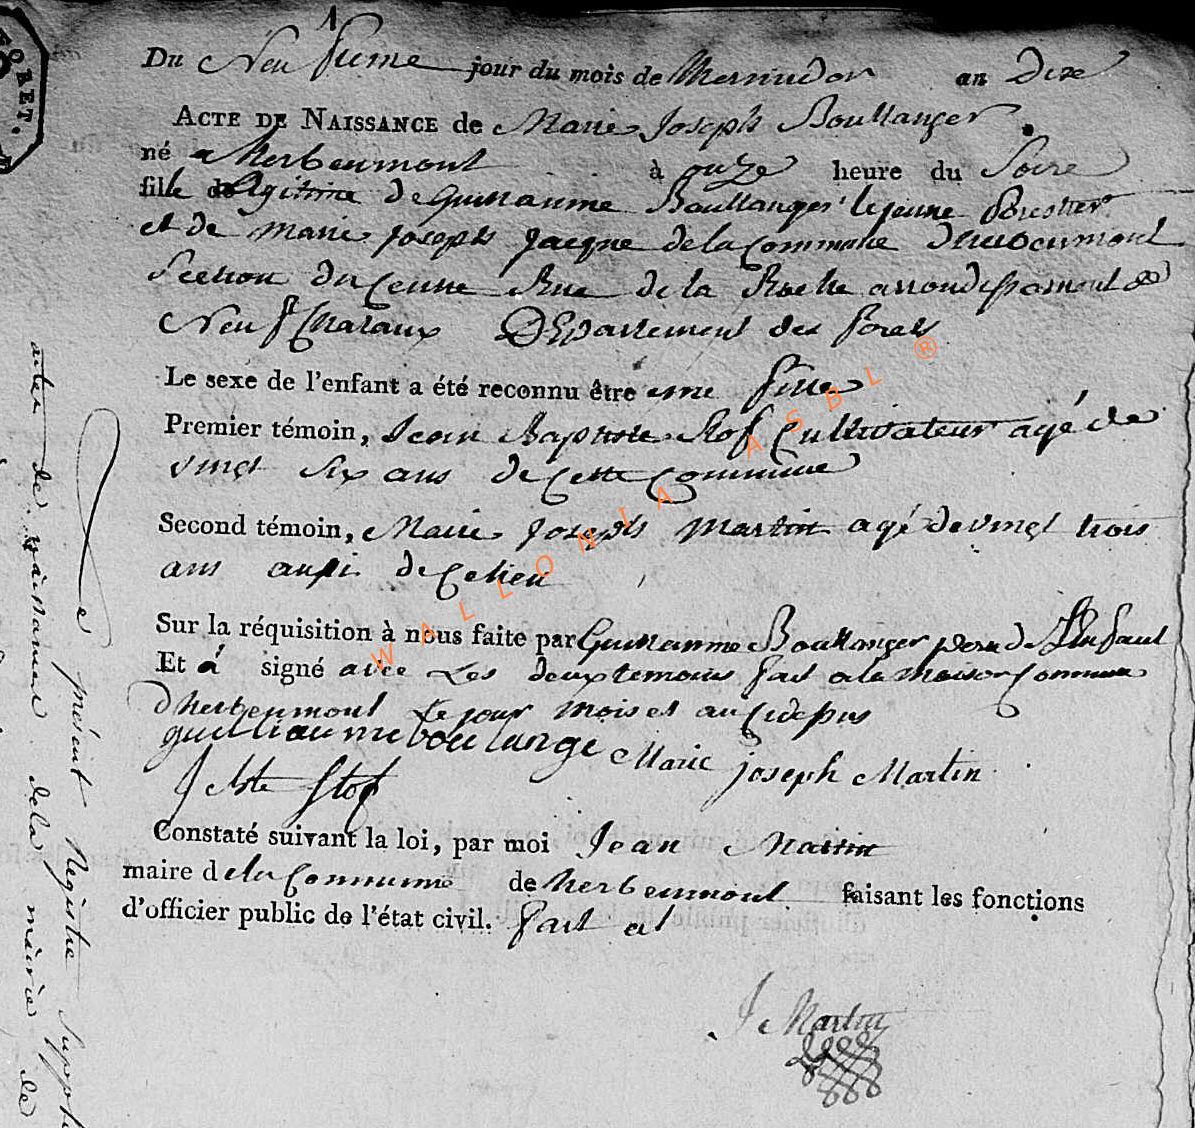 Du Neufieme jour du mois de Messidor an Dixe
ACTE DE NAISSANCE de Marie Joseph Boullanger
né a herbeumont à onze heure du Soire
fille legitime de Guillaume Boullanger le jeune forestier
et de marie joseph jacque de la Commune dherbeumont
Section du Rue de la Roche arrondissement de
Neufchataux Departement des forets
Le sexe de l'enfant a été reconnu être une fille
Premier témoin, Jean Baptiste Stof Cultivateur agé de
vingt Six ans de Cette Commune
Second témoin, Marie Joseph Martin agé de vingt trois
ans aussi de Celieu
Sur la réquisition à nous faite par Guillaume Boullanger pere de Lenfant
Et a signé avec Les deux temoins fait ala maison Commune
dherbeumont Le jour mois et an
guilliaume boulange Marie joseph Martin
J Bte Stof
Constaté suivant la loi, par moi Jean Martin
maire dela Commune de herbeumont faisant les fonctions
d'officier public de l'état civil. fait
J Martin
présent Registre
actes de naissances de la mairie de
WALLONIA ASBL ®